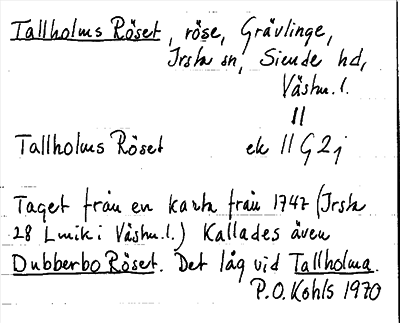 Tallholms Röset, röse, Grävlinge,
Irsta sn, Siende hd,
Västm. l.
11
Tallholms Röset ek 11G2j
Taget från en karta från 1747 (Irsta
28 Lmk i Västm. l.) Kallades även
Dubberbo Röset. Det låg vid Tallholma.
P.O. Kohls 1970